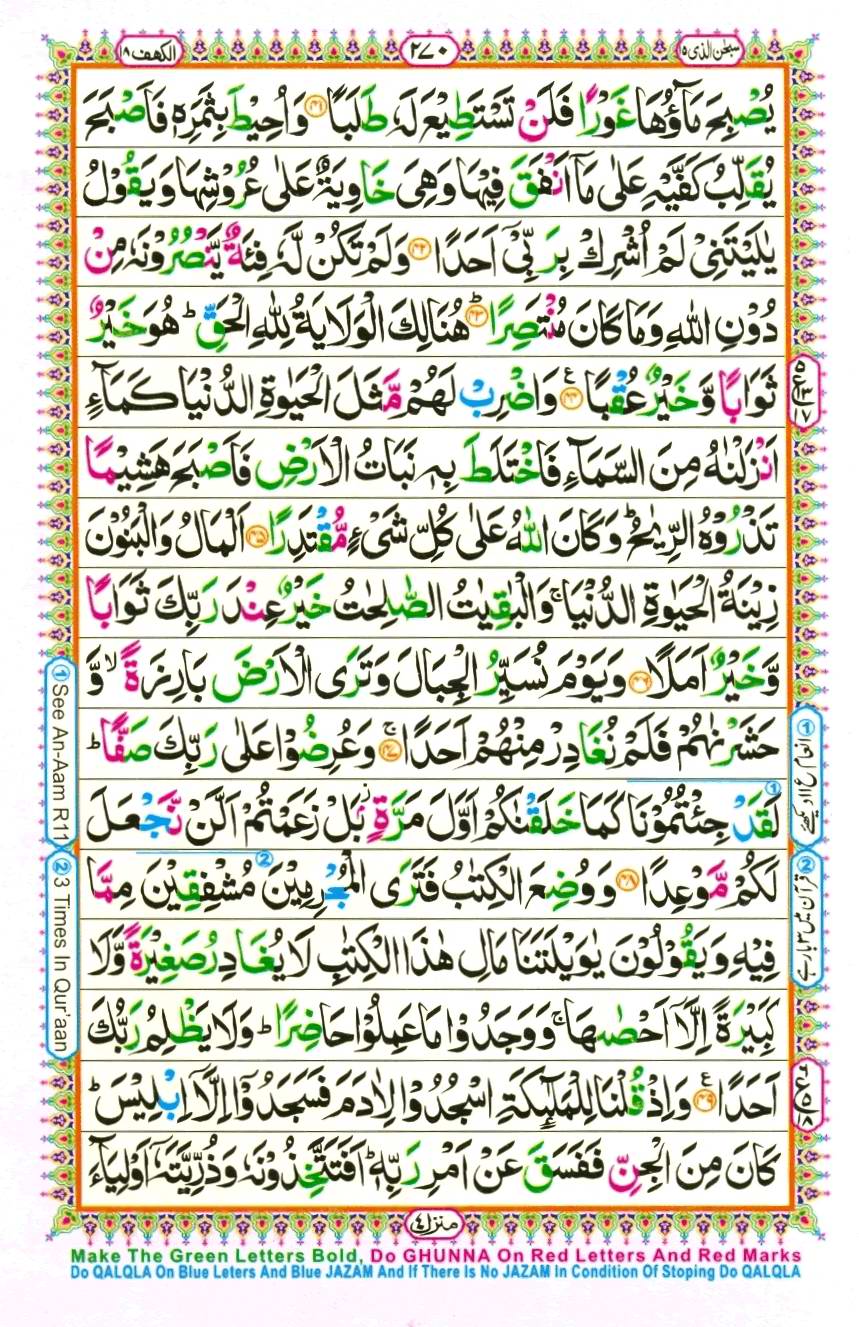 سبحٰن الذی ۱۵
۲۷۰
الکهف ۱۸
يُصْبِحَ مَآؤُهَا غَوْرًا فَلَنْ تَسْتَطِيْعَ لَهٗ طَلَبًا ﴿۴۱﴾ وَاُحِيْطَ بِثَمَرِهٖ فَاَصْبَحَ
يُقَلِّبُ كَفَّيْهِ عَلٰى مَاۤ اَنْفَقَ فِيْهَا وَهِىَ خَاوِيَةٌ عَلٰى عُرُوْشِهَا وَيَقُوْلُ
يٰلَيْتَنِىْ لَمْ اُشْرِكْ بِرَبِّىْۤ اَحَدًا ﴿۴۲﴾ وَلَمْ تَكُنْ لَّهٗ فِئَةٌ يَّنْصُرُوْنَهٗ مِنْ
دُوْنِ اللّٰهِ وَمَا كَانَ مُنْتَصِرًا ﴿۴۳﴾ؕ هُنَالِكَ الْوَلَايَةُ لِلّٰهِ الْحَقِّ ؕ هُوَ خَيْرٌ
ثَوَابًا وَّخَيْرٌ عُقْبًا ﴿۴۴﴾ع وَاضْرِبْ لَهُمْ مَّثَلَ الْحَيٰوةِ الدُّنْيَا كَمَآءٍ
اَنْزَلْنٰهُ مِنَ السَّمَآءِ فَاخْتَلَطَ بِهٖ نَبَاتُ الْاَرْضِ فَاَصْبَحَ هَشِيْمًا
تَذْرُوْهُ الرِّيٰحُ ؕ وَكَانَ اللّٰهُ عَلٰى كُلِّ شَىْءٍ مُّقْتَدِرًا ﴿۴۵﴾ اَلْمَالُ وَالْبَنُوْنَ
زِيْنَةُ الْحَيٰوةِ الدُّنْيَا ۚ وَالْبٰقِيٰتُ الصّٰلِحٰتُ خَيْرٌ عِنْدَ رَبِّكَ ثَوَابًا
وَّخَيْرٌ اَمَلًا ﴿۴۶﴾ وَيَوْمَ نُسَيِّرُ الْجِبَالَ وَتَرَى الْاَرْضَ بَارِزَةً ۙ وَّ
حَشَرْنٰهُمْ فَلَمْ نُغَادِرْ مِنْهُمْ اَحَدًا ﴿۴۷﴾ۚ وَعُرِضُوْا عَلٰى رَبِّكَ صَفًّا ؕ
لَقَدْ جِئْتُمُوْنَا كَمَا خَلَقْنٰكُمْ اَوَّلَ مَرَّةٍۢ ز بَلْ زَعَمْتُمْ اَلَّنْ نَّجْعَلَ
لَكُمْ مَّوْعِدًا ﴿۴۸﴾ وَوُضِعَ الْكِتٰبُ فَتَرَى الْمُجْرِمِيْنَ مُشْفِقِيْنَ مِمَّا
فِيْهِ وَيَقُوْلُوْنَ يٰوَيْلَتَنَا مَالِ هٰذَا الْكِتٰبِ لَا يُغَادِرُ صَغِيْرَةً وَّلَا
كَبِيْرَةً اِلَّاۤ اَحْصٰىهَا ۚ وَوَجَدُوْا مَا عَمِلُوْا حَاضِرًا ؕ وَلَا يَظْلِمُ رَبُّكَ
اَحَدًا ﴿۴۹﴾ع وَاِذْ قُلْنَا لِلْمَلٰٓئِكَةِ اسْجُدُوْا لِاٰدَمَ فَسَجَدُوْۤا اِلَّاۤ اِبْلِيْسَ ؕ
كَانَ مِنَ الْجِنِّ فَفَسَقَ عَنْ اَمْرِ رَبِّهٖ ؕ اَفَتَتَّخِذُوْنَهٗ وَذُرِّيَّتَهٗۤ اَوْلِيَآءَ
① See An-Aam R11
② 3 Times In Qur'aan
① انعام ع ۱۱ دیکھئے
② قرآن میں ۳ بار ہے
منزل ۴
Make The Green Letters Bold, Do GHUNNA On Red Letters And Red Marks
Do QALQLA On Blue Leters And Blue JAZAM And If There Is No JAZAM In Condition Of Stoping Do QALQLA